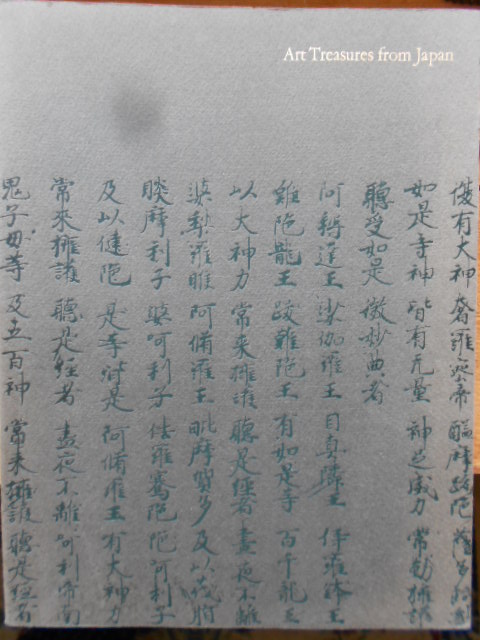 Art Treasures from Japan
復有大神
如是等神 皆有无量 神足威力 常勤擁護
聽受如是 微妙典者
阿耨達王 娑伽羅王 目真隣王 伊羅鉢王
難陁龍王 跋難陁王 有如是等 百千龍王
以大神力 常来擁護 聽是經者 晝夜不離
婆梨羅睺 阿脩羅王 毗摩質多 及以茂脂
睒摩利子 婆呵利子 佉羅騫陁
及以揵陁 是等皆是 阿脩羅王 有大神力
常來擁護 聽是經者 晝夜不離 呵利帝南
鬼子母等 及五百神 常来擁護 聽是經者